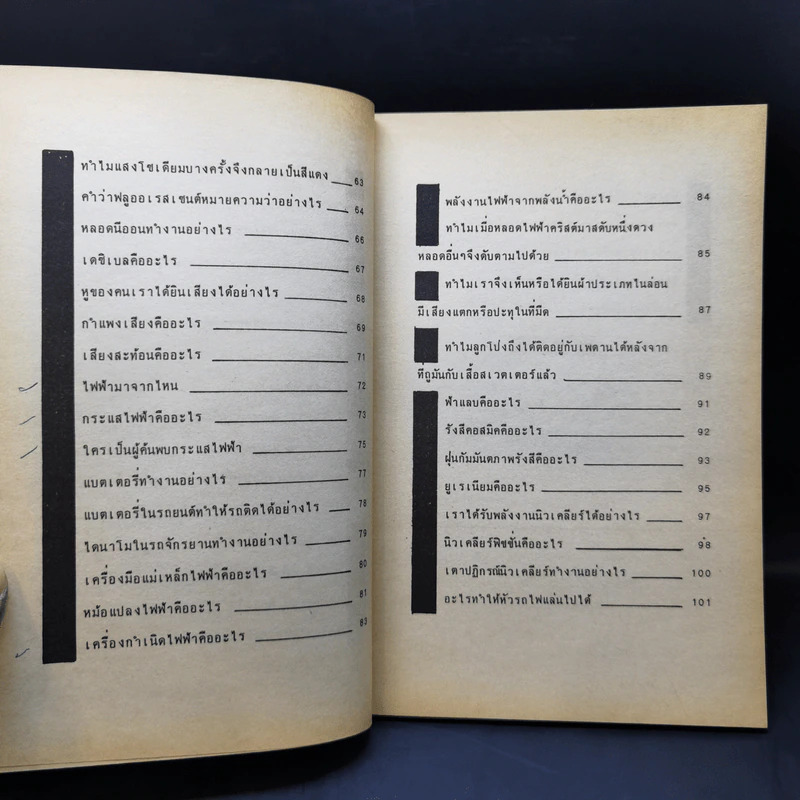 ทำไมแสงโซเดียมบางครั้งจึงกลายเป็นสีแดง 63
คำว่าฟลูออเรสเซนต์หมายความว่าอย่างไร 64
หลอดนีออนทำงานอย่างไร 66
เดซิเบลคืออะไร 67
หูของคนเราได้ยินเสียงได้อย่างไร 68
กำแพงเสียงคืออะไร 69
เสียงสะท้อนคืออะไร 71
ไฟฟ้ามาจากไหน 72
กระแสไฟฟ้าคืออะไร 73
ใครเป็นผู้ค้นพบกระแสไฟฟ้า 75
แบตเตอรี่ทำงานอย่างไร 77
แบตเตอรี่ในรถยนต์ทำให้รถติดได้อย่างไร 78
ไดนาโมในรถจักรยานทำงานอย่างไร 79
เครื่องมือแม่เหล็กไฟฟ้าคืออะไร 80
หม้อแปลงไฟฟ้าคืออะไร 81
เครื่องกำเนิดไฟฟ้าคืออะไร 83
พลังงานไฟฟ้าจากพลังน้ำคืออะไร 84
ทำไมเมื่อหลอดไฟฟ้าคริสต์มาสดับหนึ่งดวง
หลอดอื่นๆจึงดับตามไปด้วย 85
ทำไมเราจึงเห็นหรือได้ยินผ้าประเภทไนล่อน
มีเสียงแตกหรือปะทุในที่มืด 87
ทำไมลูกโป่งถึงได้ติดอยู่กับเพดานได้หลังจาก
ที่ถูมันกับเสื้อสเวตเตอร์แล้ว 89
ฟ้าแลบคืออะไร 91
รังสีคอสมิคคืออะไร 92
ฝุ่นกัมมันตภาพรังสีคืออะไร 93
ยูเรเนียมคืออะไร 95
เราได้รับพลังงานนิวเคลียร์ได้อย่างไร 97
นิวเคลียร์ฟิชชั่นคืออะไร 98
เตาปฏิกรณ์นิวเคลียร์ทำงานอย่างไร 100
อะไรทำให้หัวรถไฟแล่นไปได้ 101